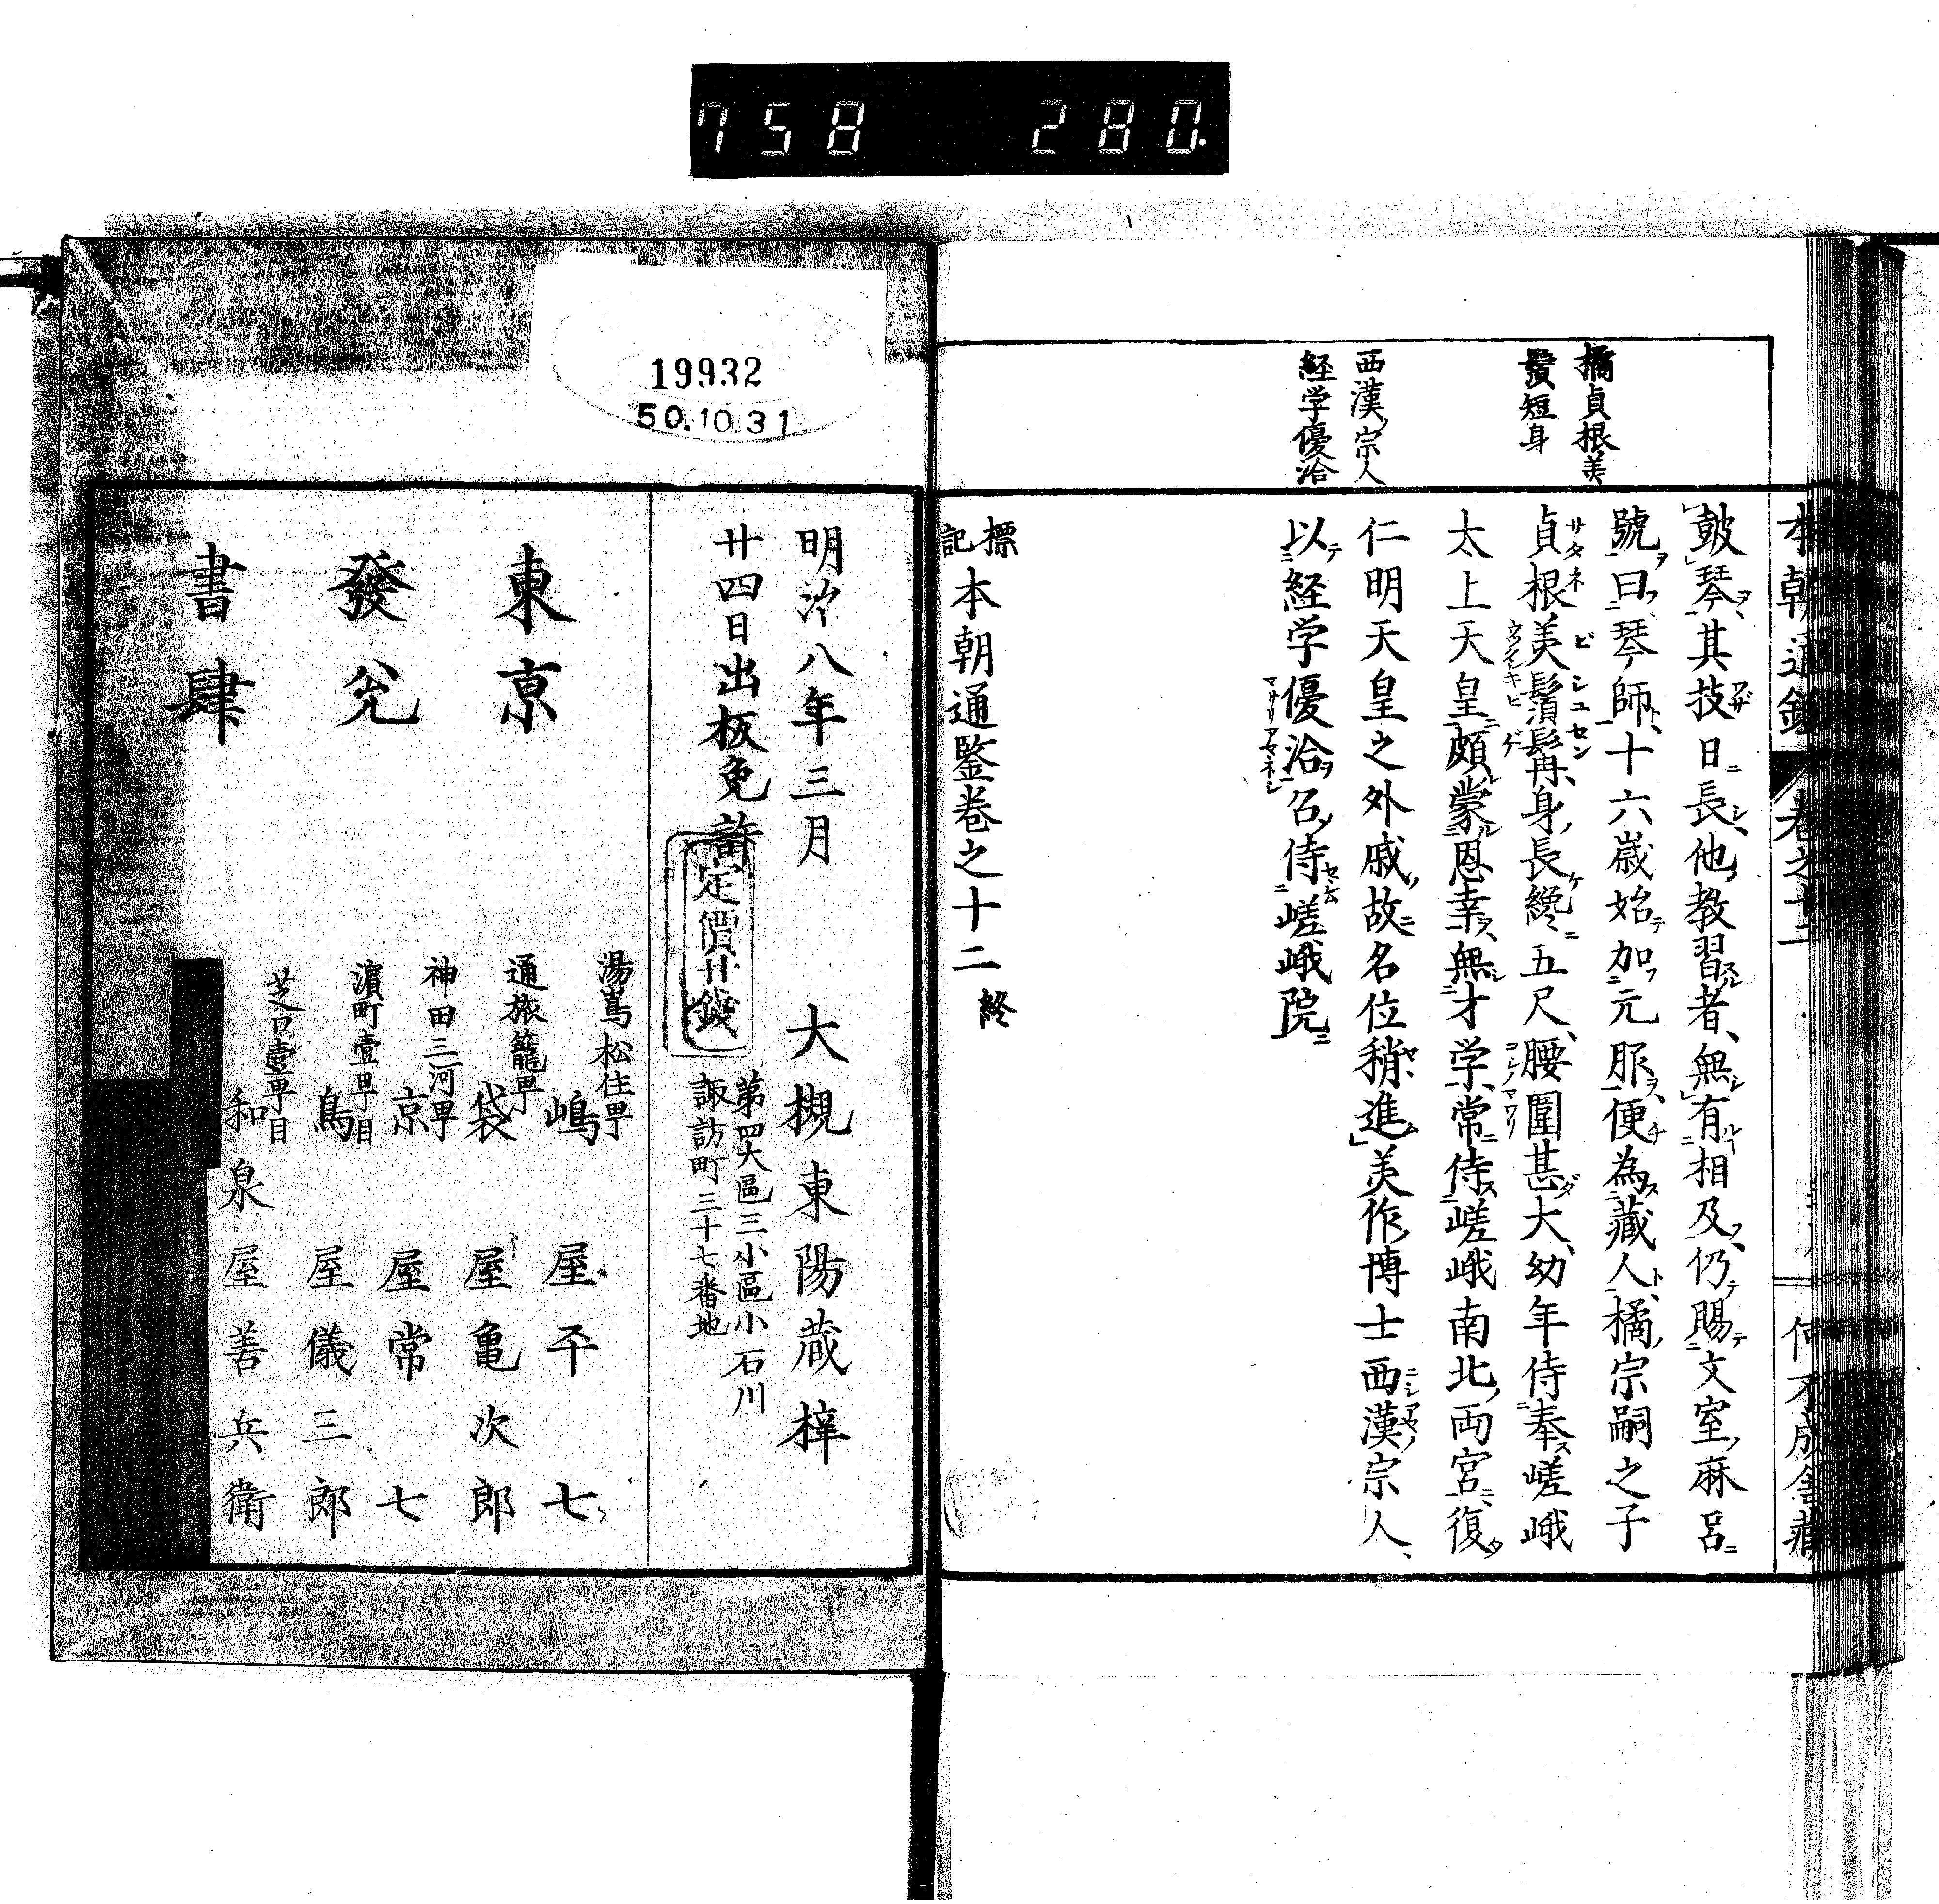 758 280.
本朝通鑑
巻之十二
何不成舎蔵
橘貞根美
鬚短身
西漢宗人
経学優洽
鼓琴其技日長他教習者無有相及仍賜文室麻呂
號曰琴師十六歳始加元服便為蔵人橘宗嗣之子
貞根美鬚髯身長纔五尺腰圍甚大幼年侍奉嵯峨
太上天皇頗蒙恩幸無才学常侍嵯峨南北両宮復
仁明天皇之外戚故名位稍進美作博士西漢宗人
以経学優洽召侍嵯峨院
標記本朝通鑒巻之十二終
19932
50.10.31
明治八年三月
廿四日出板免許
定價廿錢
大槻東陽蔵梓
第四大區三小區小石川
諏訪町三十七番地
東京
發兌
書肆
湯嶌松住町
嶋屋平七
通旅籠町
袋屋亀次郎
神田三河町
京屋常七
濵町壹町目
鳥屋儀三郎
芝口壹町目
和泉屋善兵衛